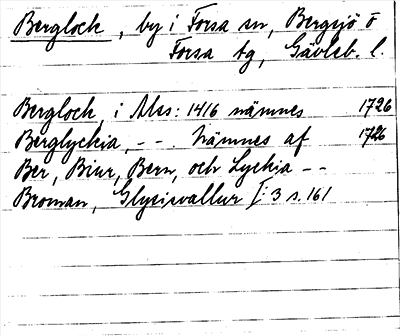 Berglock, by i Forsa sn, Bergsjö o
Forsa tg, Gävleb. l.
Berglock, i Mss: 1416 nämnes 1726
Berglyckia, - - . Nämnes af 1726
Ber, Biur, Bern, och Lyckia - -
Broman, Glysisvallur I: 3 s. 161